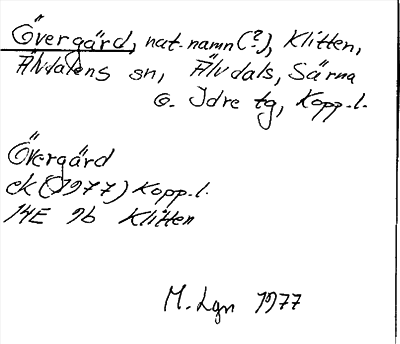 Övergärd, nat.namn(?), Klitten,
Älvdalens sn, Älvdals, Särna
o. Idre tg, Kopp.l.
Övergärd
ek(1977) Kopp.l.
14E 9b Klitten
M. Lgn 1977